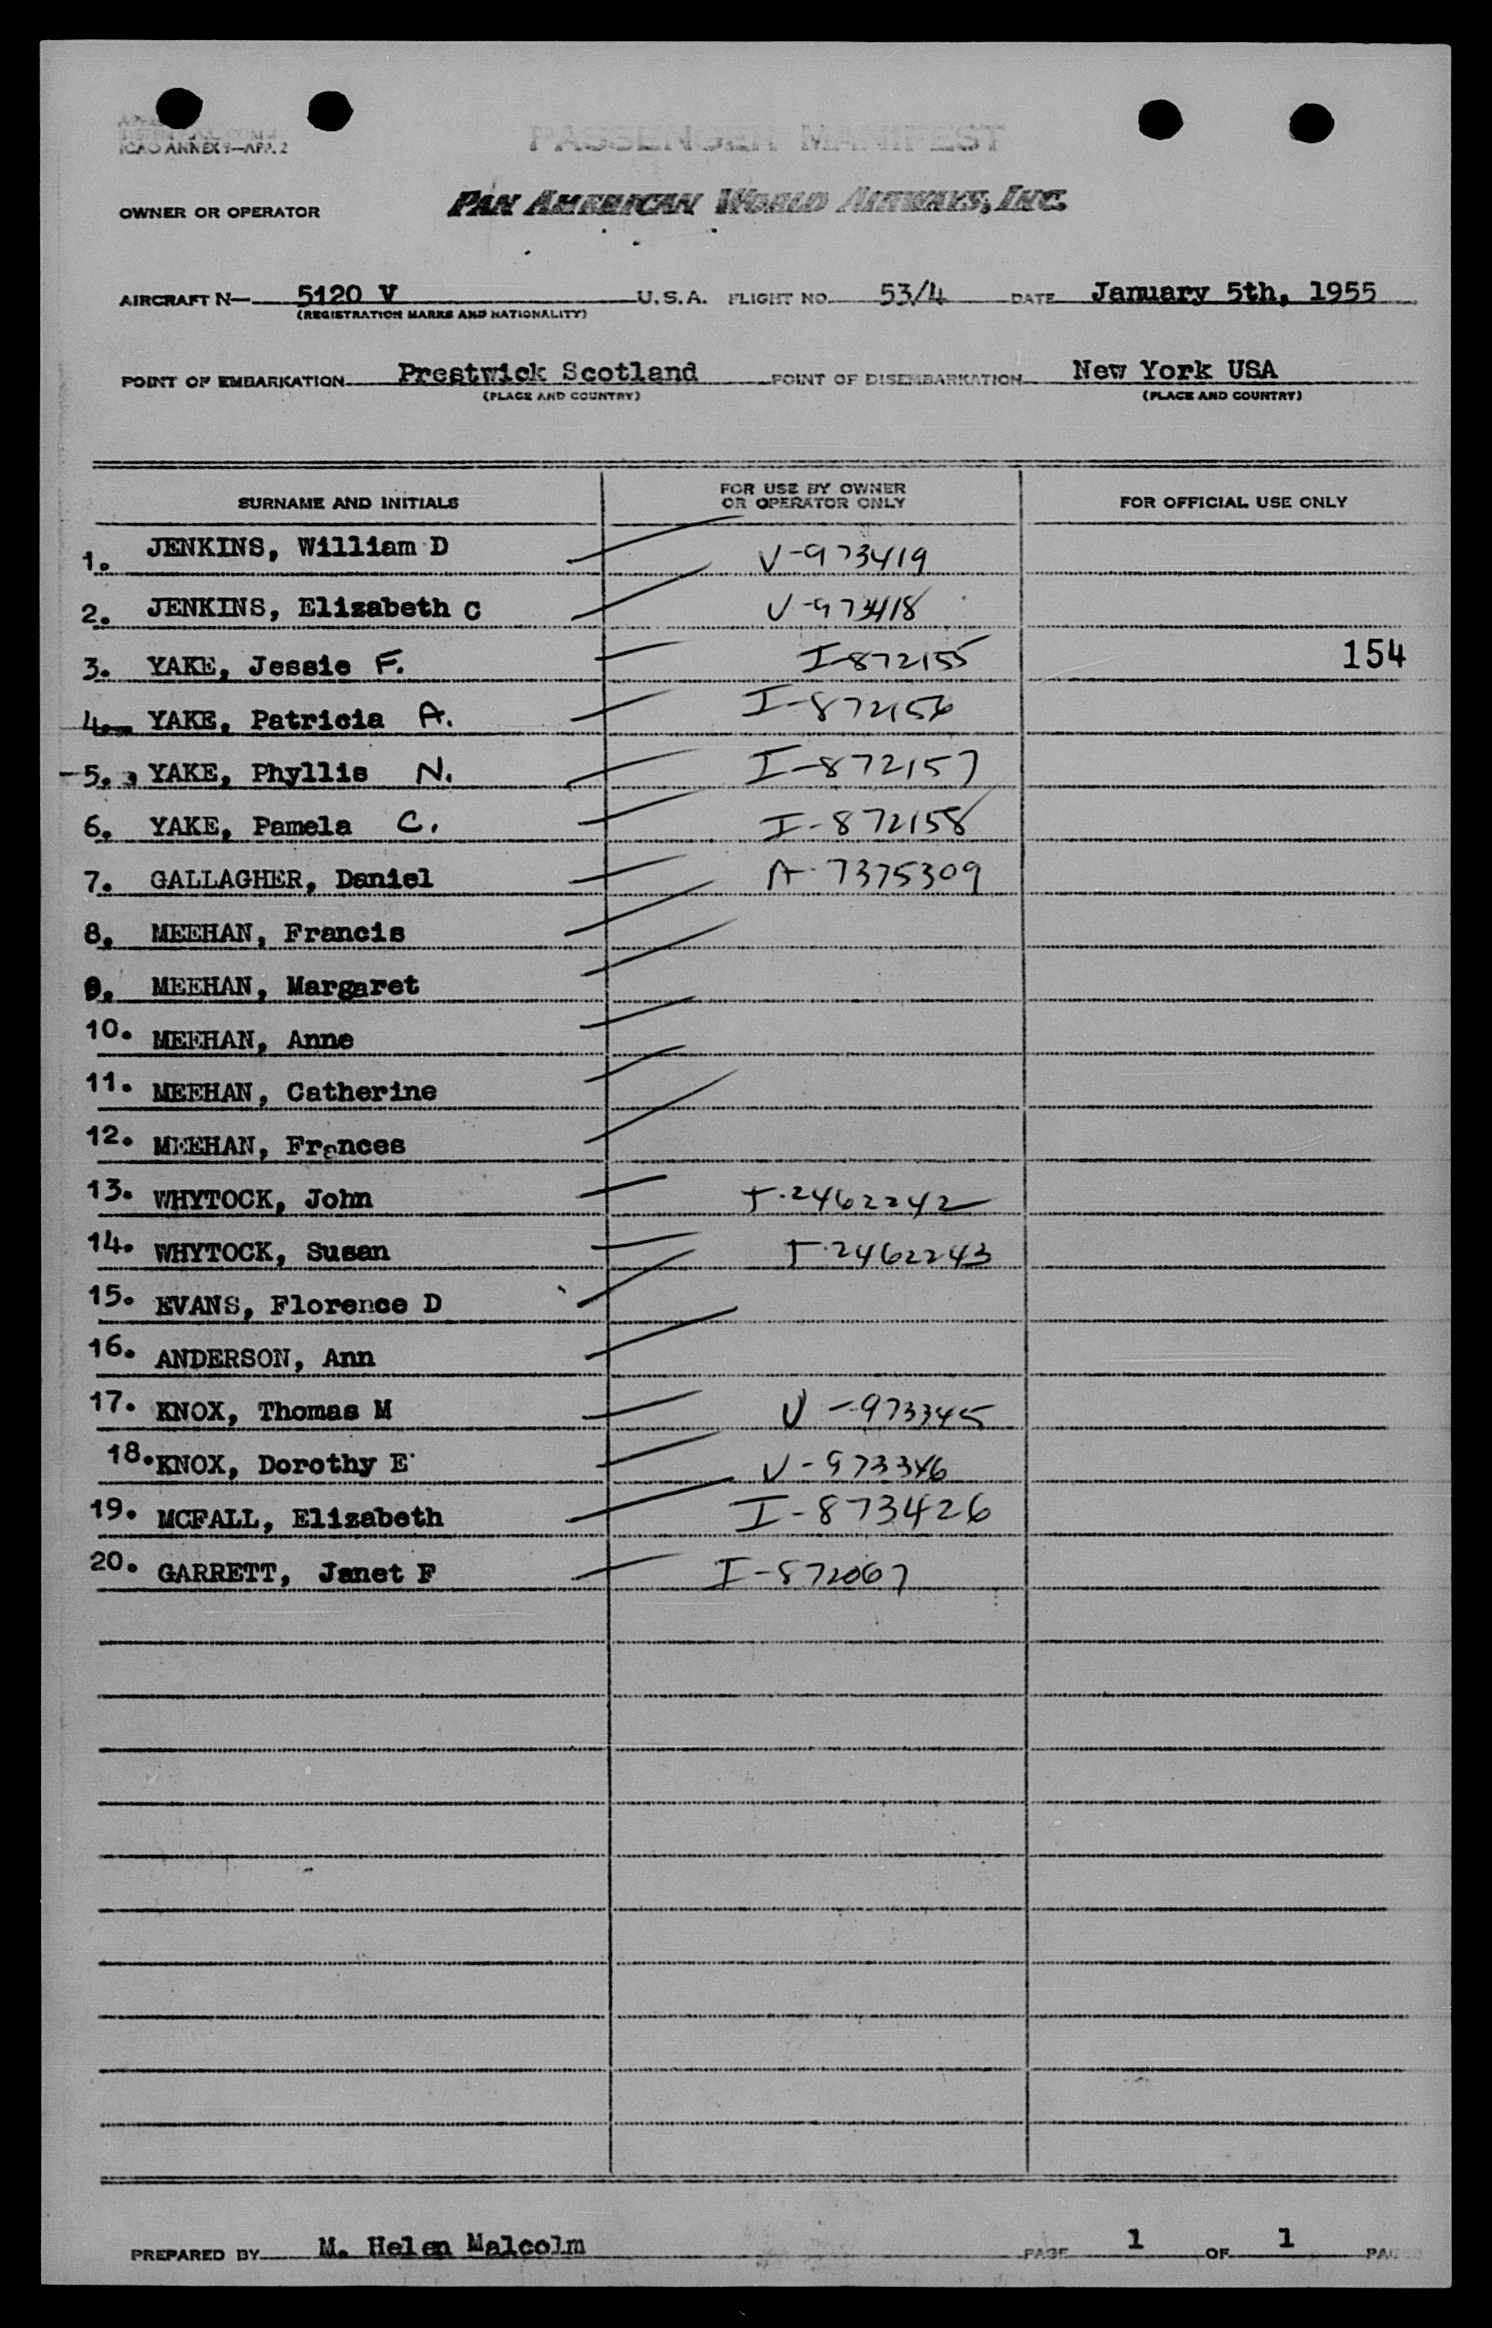 ICAO ANNEX 9—APP. 2
PASSENGER MANIFEST
OWNER OR OPERATOR PAN AMERICAN WORLD AIRWAYS, INC.
AIRCRAFT N— 5120 V U.S.A. FLIGHT NO. 53/4 DATE January 5th, 1955
(REGISTRATION MARKS AND NATIONALITY)
POINT OF EMBARKATION Prestwick Scotland POINT OF DISEMBARKATION New York USA
(PLACE AND COUNTRY) (PLACE AND COUNTRY)
SURNAME AND INITIALS FOR USE BY OWNER OR OPERATOR ONLY FOR OFFICIAL USE ONLY
1. JENKINS, William D V-973419
2. JENKINS, Elizabeth C V-973418
3. YAKE, Jessie F. I-872155 154
4. YAKE, Patricia A. I-872156
5. YAKE, Phyllis N. I-872157
6. YAKE, Pamela C. I-872158
7. GALLAGHER, Daniel A-7375309
8. MEEHAN, Francis
9. MEEHAN, Margaret
10. MEEHAN, Anne
11. MEEHAN, Catherine
12. MEEHAN, Frances
13. WHYTOCK, John T-2462242
14. WHYTOCK, Susan T-2462243
15. EVANS, Florence D
16. ANDERSON, Ann
17. KNOX, Thomas M V-973345
18. KNOX, Dorothy E V-973346
19. MCFALL, Elizabeth I-873426
20. GARRETT, Janet F I-872067
PREPARED BY M. Helen Malcolm PAGE 1 OF 1 PAGES